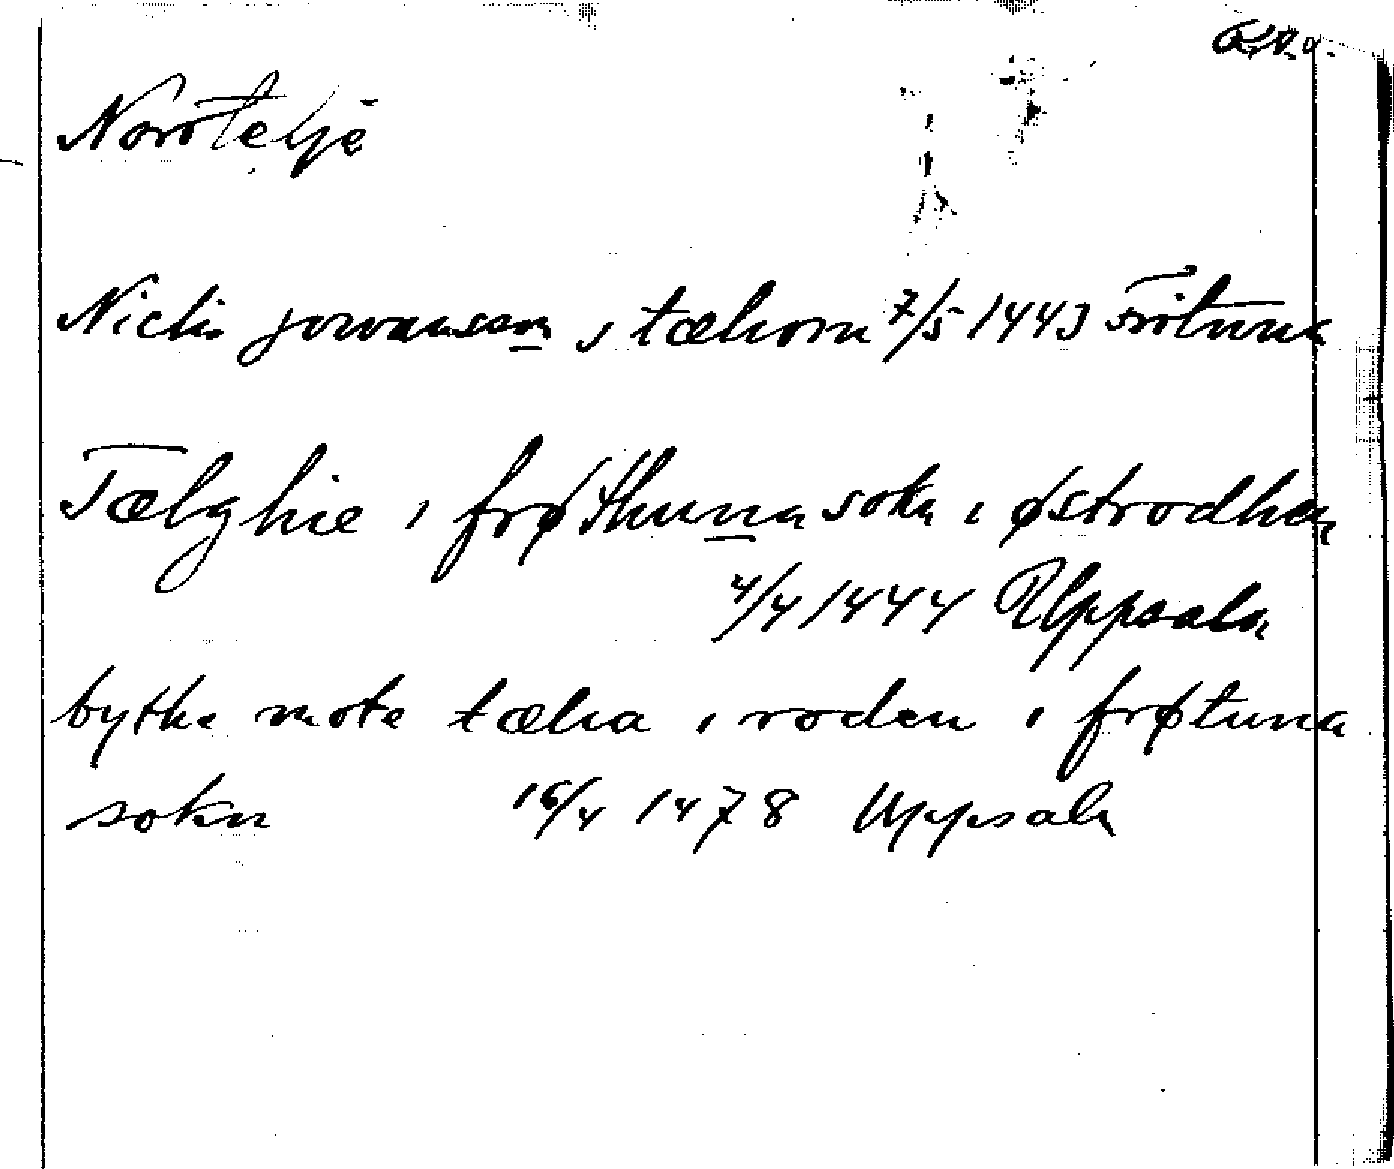 Norrtelje
Niclis jowansson i tæliom 7/5 1443 Frötuna
Tælghie i frøthuna sokn i østrodhen
4/4 1444 Uppsala
bythe mote tælia i roden i frøtuna
sokn 16/4 1478 Uppsala